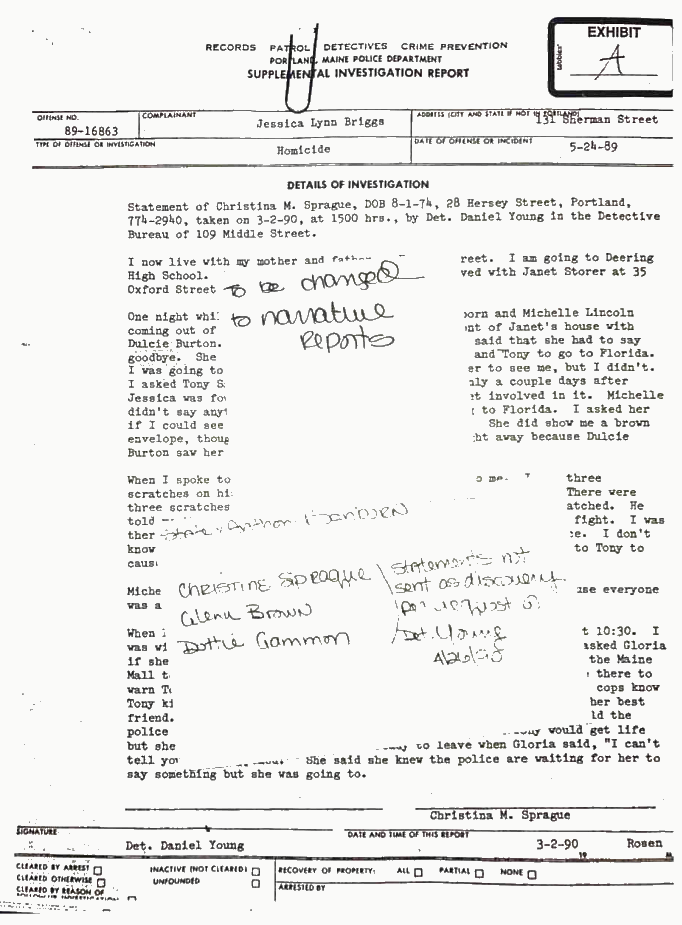 EXHIBIT
A
RECORDS PATROL DETECTIVES CRIME PREVENTION
PORTLAND, MAINE POLICE DEPARTMENT
SUPPLEMENTAL INVESTIGATION REPORT
OFFENSE NO.
89-16863
COMPLAINANT
Jessica Lynn Briggs
ADDRESS (CITY AND STATE IF NOT IN PORTLAND)
131 Sherman Street
TYPE OF OFFENSE OR INVESTIGATION
Homicide
DATE OF OFFENSE OR INCIDENT
5-24-89
DETAILS OF INVESTIGATION
Statement of Christina M. Sprague, DOB 8-1-74, 28 Hersey Street, Portland,
774-2940, taken on 3-2-90, at 1500 hrs., by Det. Daniel Young in the Detective
Bureau of 109 Middle Street.
I now live with my mother and reet. I am going to Deering
High School. ved with Janet Storer at 35
Oxford Street
To be changed
to narrative
Reports
One night whi orn and Michelle Lincoln
coming out of nt of Janet's house with
Dulcie Burton. said that she had to say
goodbye. She and Tony to go to Florida.
I was going to er to see me, but I didn't.
I asked Tony S ly a couple days after
Jessica was fo t involved in it. Michelle
didn't say any to Florida. I asked her
if I could see She did show me a brown
envelope, thoug ht away because Dulcie
Burton saw her
When I spoke to o me. three
scratches on hi There were
three scratches atched. He
told fight. I was
ther e. I don't
know to Tony to
caus
Christine Sprague
Glenn Brown
Dottie Gammon
statements not
sent as discovery
per request of
Det. Young
Miche use everyone
was a
When I t 10:30. I
was wi asked Gloria
if she the Maine
Mall t there to
warn T cops know
Tony ki her best
friend. ld the
police would get life
but she to leave when Gloria said, "I can't
tell yo She said she knew the police are waiting for her to
say something but she was going to.
Christina M. Sprague
SIGNATURE
Det. Daniel Young
DATE AND TIME OF THIS REPORT
3-2-90
19
Rosen
CLEARED BY ARREST
CLEARED OTHERWISE
CLEARED BY REASON OF
INACTIVE (NOT CLEARED)
UNFOUNDED
RECOVERY OF PROPERTY: ALL PARTIAL NONE
ARRESTED BY